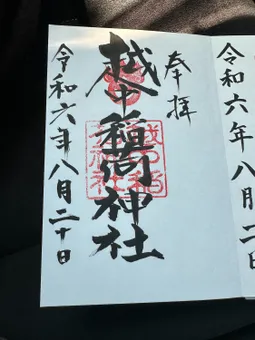 令和六年八月二十日
奉拝
越中稲荷神社
令和六年八月二十日